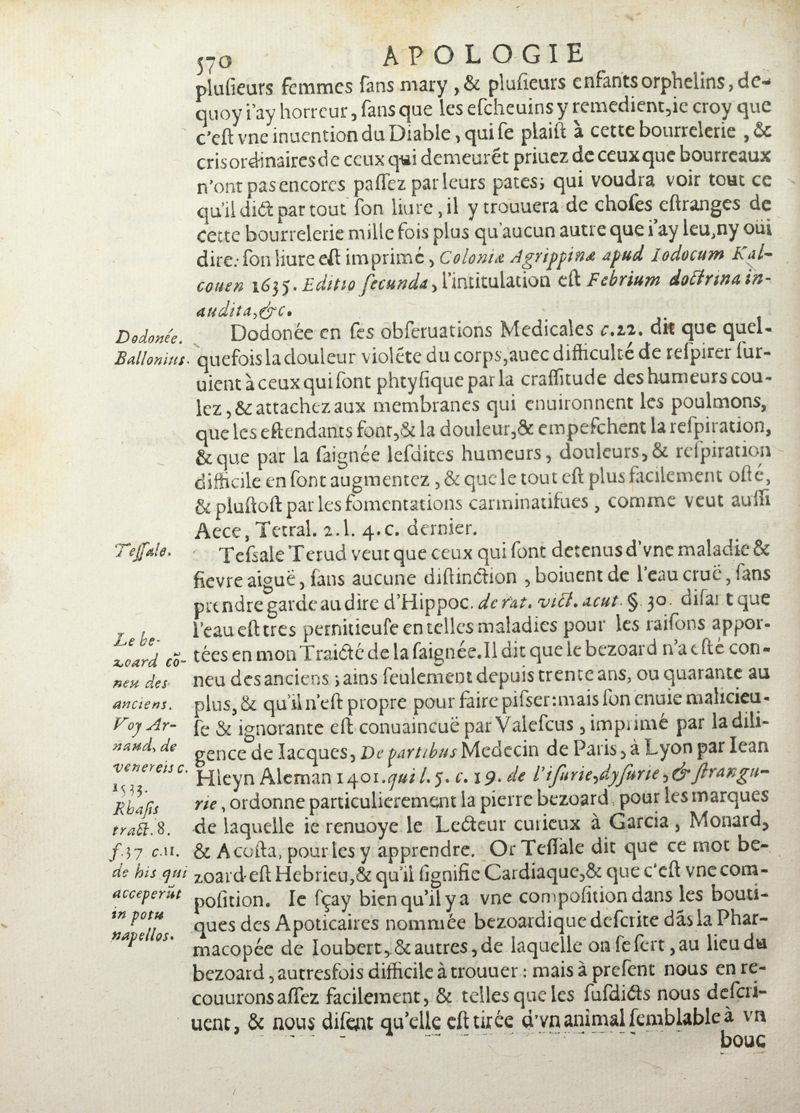 570 APOLOGIE
plusieurs femmes sans mary, & plusieurs enfants orphelins, de-
quoy i'ay horreur, sans que les escheuins y remedient, ie croy que
c'est vne inuention du Diable, qui se plaist à cette bourrelerie, &
cris ordinaires de ceux qui demeurẽt priuez de ceux que bourreaux
n'ont pas encores passez par leurs pates; qui voudra voir tout ce
qu'il dict par tout son liure, il y trouuera de choses estranges de
cette bourrelerie mille fois plus qu'aucun autre que i'ay leu, ny oüi
dire: son liure est imprimé, Coloniæ Agrippinæ apud Iodocum Kal-
couen 1635. Editio secunda, l'intitulation est Febrium doctrina in-
audita, &c.
Dodonée.
Ballonius.
Dodonée en ses obseruations Medicales c.22. dit que quel-
quefois la douleur violẽte du corps, auec difficulté de respirer sur-
uient à ceux qui sont phtysique par la crassitude des humeurs cou-
lez, & attachez aux membranes qui enuironnent les poulmons,
que les estendants font, & la douleur, & empeschent la respiration,
& que par la saignée lesdites humeurs, douleurs, & respiration
difficile en sont augmentez, & que le tout est plus facilement osté,
& plustost par les fomentations carminatifues, comme veut aussi
Aece, Tetral. 2. l. 4. c. dernier.
Tessale.
Tessale Terud veut que ceux qui sont detenus d'vne maladie &
fievre aiguë, sans aucune distinction, boiuent de l'eau cruë, sans
prendre garde au dire d'Hippoc. de rat. vict. acut. §. 30. disait que
l'eau est tres pernitieuse en telles maladies pour les raisons appor-
Le be-
zoard cõ-
neu des
anciens.
Voy Ar-
naud, de
venereis c.
1533.
Rhasis
tract. 8.
f.37 c.11.
de his qui
acceperũt
in potu
napellos.
tées en mon Traicté de la saignée. Il dit que le bezoard n'a esté con-
neu des anciens; ains seulement depuis trente ans, ou quarante au
plus, & qu'il n'est propre pour faire pisser: mais son enuie malicieu-
se & ignorante est conuaincuë par Valescus, imprimé par la dili-
gence de Iacques, De partibus Medecin de Paris, à Lyon par Iean
Hleyn Aleman 1401. qui l. 5. c. 19. de l'isurie, dysurie, & strangu-
rie, ordonne particulierement la pierre bezoard, pour les marques
de laquelle ie renuoye le Lecteur curieux à Garcia, Monard,
& Acosta, pour les y apprendre. Or Tessale dit que ce mot be-
zoard est Hebrieu, & qu'il signifie Cardiaque, & que c'est vne com-
position. Ie sçay bien qu'il y a vne composition dans les bouti-
ques des Apoticaires nommée bezoardique descrite dãs la Phar-
macopée de Ioubert, & autres, de laquelle on se sert, au lieu du
bezoard, autresfois difficile à trouuer: mais à present nous en re-
couurons assez facilement, & telles que les susdicts nous descri-
uent, & nous disent qu'elle est tirée d'vn animal semblable à vn
bouc